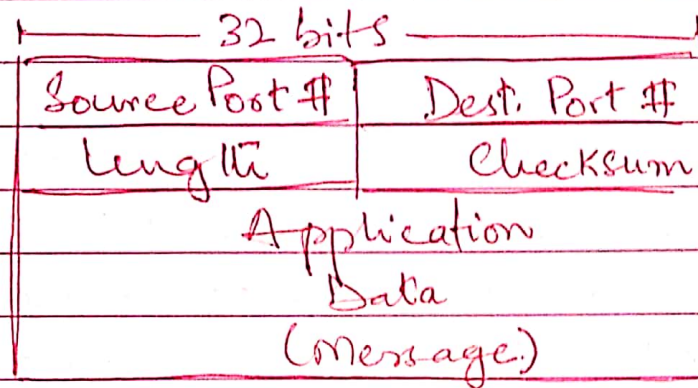 32 bits
Source Port # Dest. Port #
Length Checksum
Application
Data
(Message)